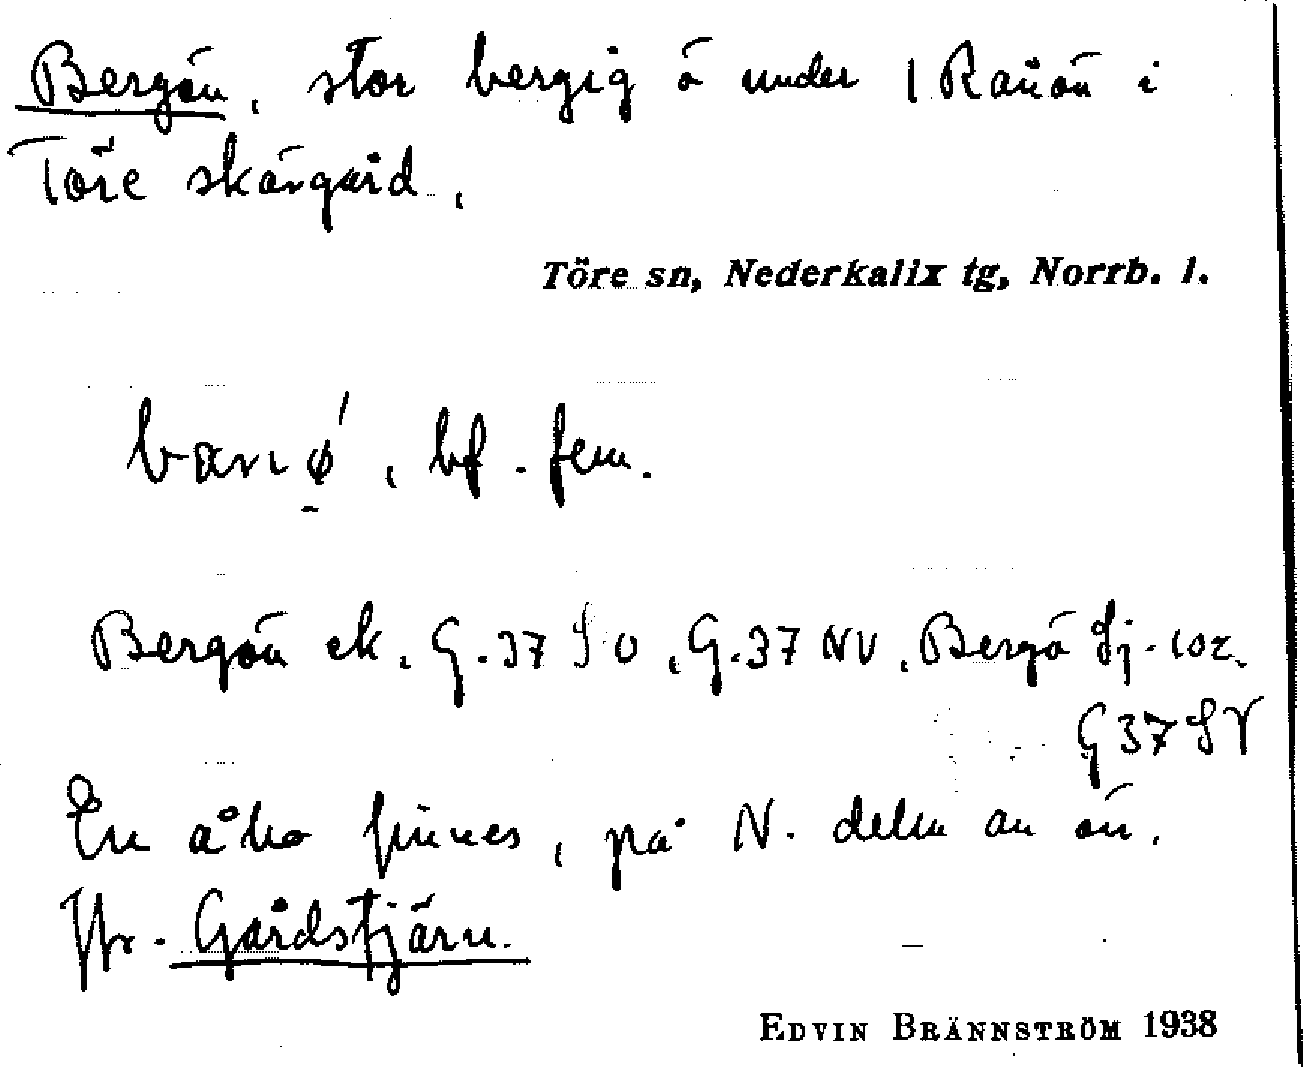 Bergön, stor bergig ö under 1 Rånön i
Töre skärgård.
Töre sn, Nederkalix tg, Norrb. l.
bf. fem.
Bergön ek. G.37 SO, G.37 NV, Bergö Sj-kor.
G 37 SV
En åbo finnes, på N. delen av ön.
Jfr. Gårdstjärn.
EDVIN BRÄNNSTRÖM 1938